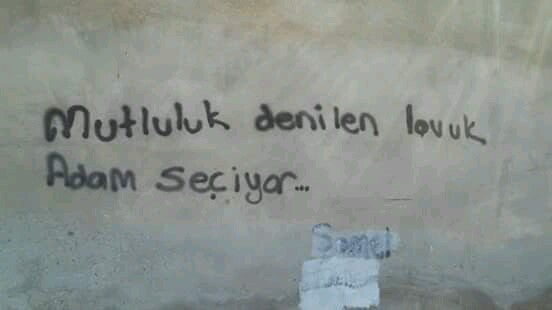 Mutluluk denilen lavuk
Adam seçiyor...